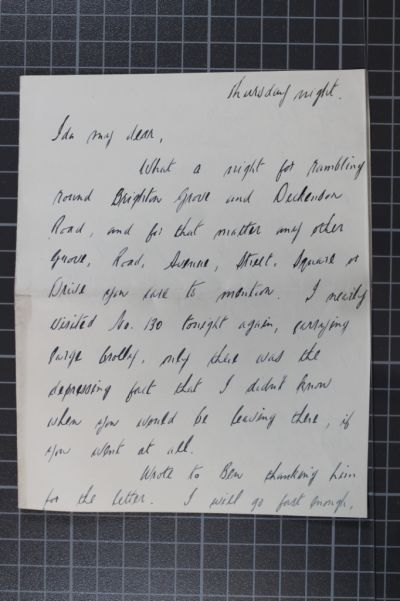 Thursday night.
Ida my dear,
What a night for rambling
round Brighton Grove and Dickenson
Road, and for that matter any other
Grove, Road, Avenue, Street, Square or
Drive you care to mention. I nearly
visited No. 130 tonight again, carrying
large brolly, only there was the
depressing fact that I didn't know
when you would be leaving there, if
you went at all.
Wrote to Ben thanking him
for the letter. I will go fast enough,